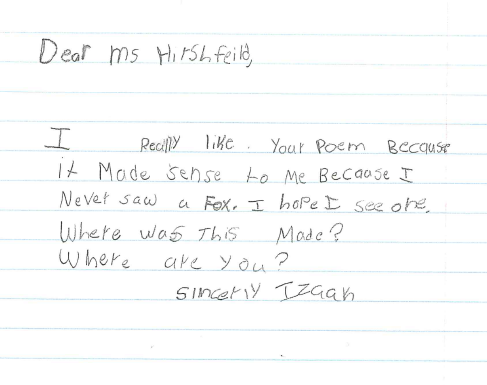 Dear Ms Hirshfeild,
I Really like. Your Poem Because
it Made sense to Me Because I
Never saw a Fox. I hope I see one.
Where was This Made?
Where are you?
Sincerly Izaak